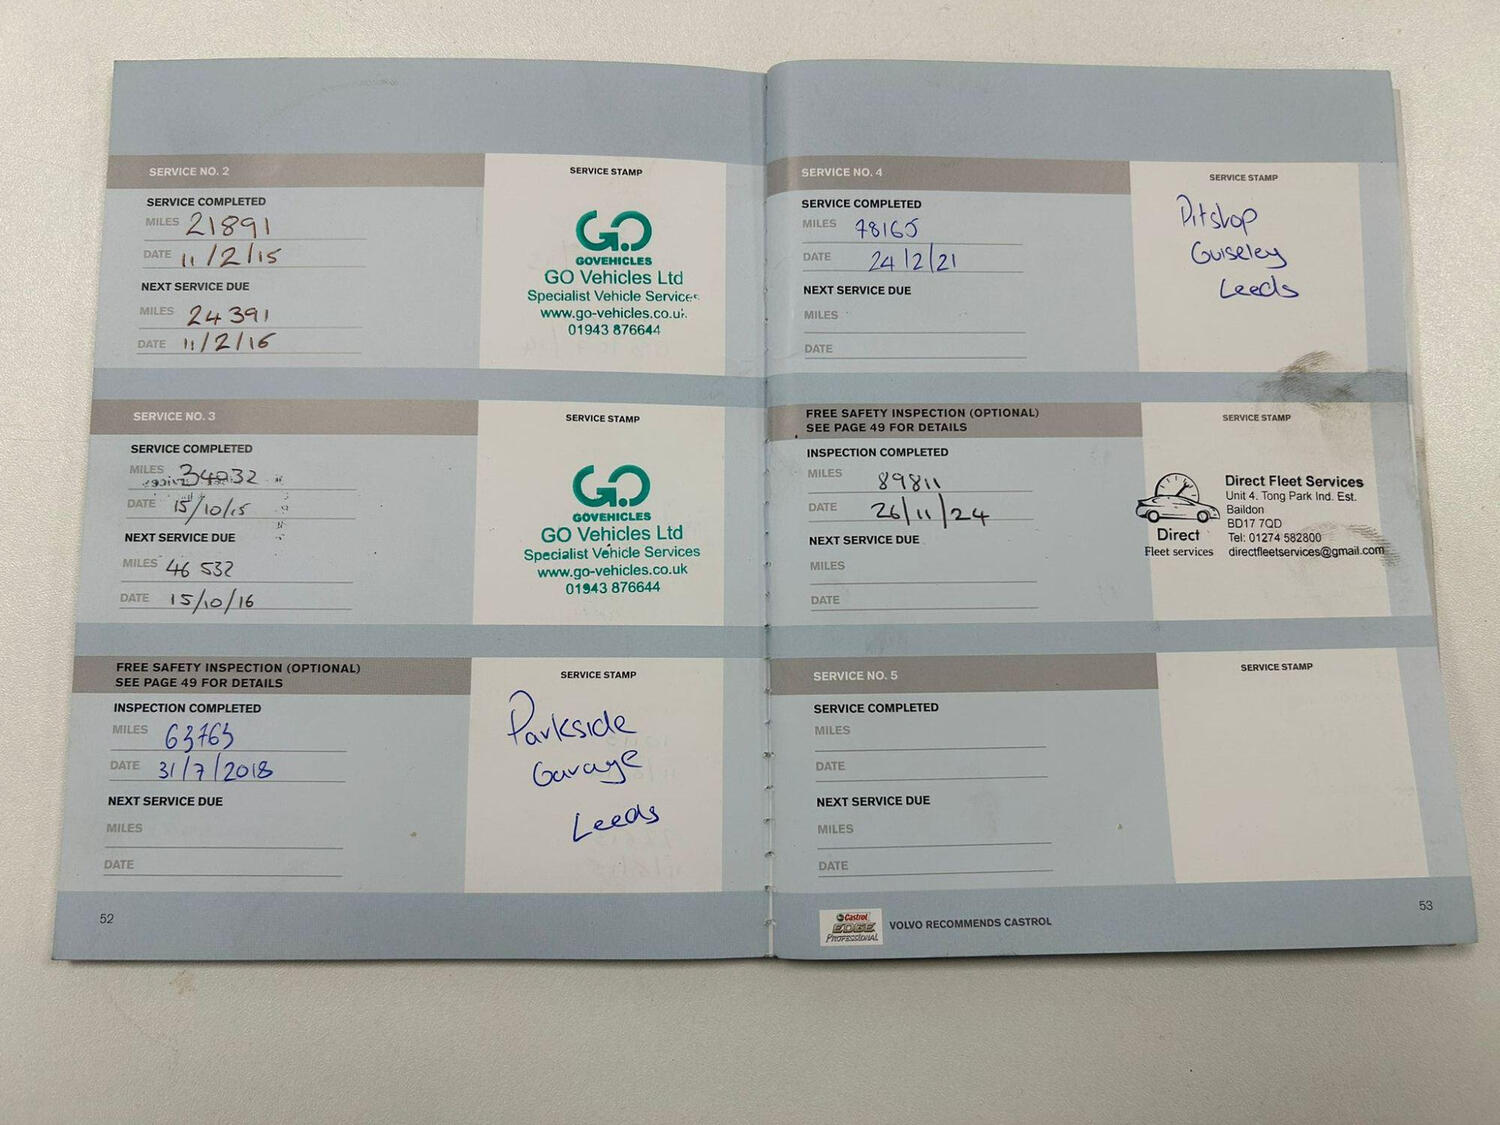 SERVICE NO. 2
SERVICE STAMP
SERVICE COMPLETED
MILES 21891
DATE 11/2/15
NEXT SERVICE DUE
MILES 24391
DATE 11/2/16
GO
GOVEHICLES
GO Vehicles Ltd
Specialist Vehicle Services
www.go-vehicles.co.uk
01943 876644
SERVICE NO. 3
SERVICE STAMP
SERVICE COMPLETED
MILES 34032
DATE 15/10/15
NEXT SERVICE DUE
MILES 46 532
DATE 15/10/16
GO
GOVEHICLES
GO Vehicles Ltd
Specialist Vehicle Services
www.go-vehicles.co.uk
01943 876644
FREE SAFETY INSPECTION (OPTIONAL)
SEE PAGE 49 FOR DETAILS
SERVICE STAMP
INSPECTION COMPLETED
MILES 63763
DATE 31/7/2018
NEXT SERVICE DUE
MILES
DATE
Parkside
Garage
Leeds
52
SERVICE NO. 4
SERVICE STAMP
SERVICE COMPLETED
MILES 78165
DATE 24/2/21
NEXT SERVICE DUE
MILES
DATE
Pitstop
Guiseley
Leeds
FREE SAFETY INSPECTION (OPTIONAL)
SEE PAGE 49 FOR DETAILS
SERVICE STAMP
INSPECTION COMPLETED
MILES 89811
DATE 26/11/24
NEXT SERVICE DUE
MILES
DATE
Direct
Fleet services
Direct Fleet Services
Unit 4. Tong Park Ind. Est.
Baildon
BD17 7QD
Tel: 01274 582800
directfleetservices@gmail.com
SERVICE NO. 5
SERVICE STAMP
SERVICE COMPLETED
MILES
DATE
NEXT SERVICE DUE
MILES
DATE
Castrol
EDGE
PROFESSIONAL
VOLVO RECOMMENDS CASTROL
53